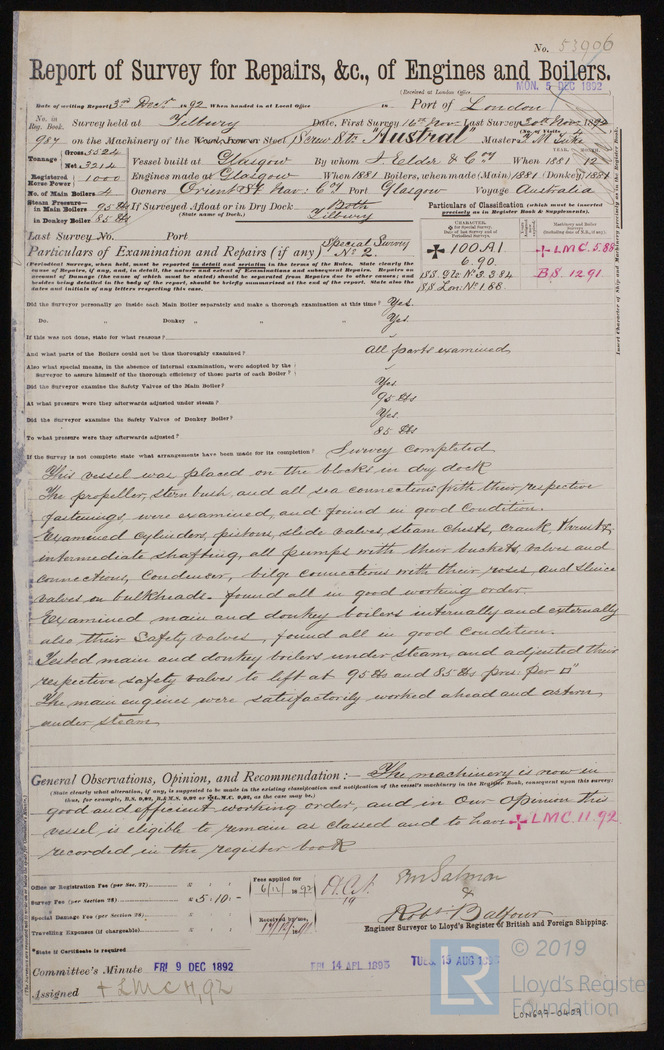 No. 53906
Report of Survey for Repairs, &c., of Engines and Boilers.
(Received at London Office
MON. 5 DEC 1892
Date of writing Report 3rd Decr. 1892 When handed in at Local Office 18 Port of London
No. in Reg. Book. Survey held at Tilbury Date, First Survey 16th Nov. Last Survey 30th Nov. 1892
(No. of Visits 4)
987 on the Machinery of the Wood, Iron or Steel Screw Str "Austral" Master
Tonnage Gross 5524
Net 3214
Vessel built at Glasgow By whom J. Elder & Coy When 1881 12
YEAR. MONTH.
Registered Horse Power 1000 Engines made at Glasgow When 1881 Boilers, when made (Main) 1881 (Donkey) 1881
No. of Main Boilers 4 Owners Orient St Nav: Coy Port Glasgow Voyage Australia
Steam Pressure in Main Boilers 95 lbs If Surveyed Afloat or in Dry Dock Both
in Donkey Boiler 85 lbs (State name of Dock.) Tilbury
Particulars of Classification (which must be inserted precisely as in Register Book & Supplements).
Last Survey No. Port
CHARACTER.
Machinery and Boiler Surveys
Particulars of Examination and Repairs (if any) Special Survey No 2.
+ 100A1
6.90.
SS. Gls. No 2. 3.84
SS. Lon. No 1. 88.
+ LMC. 5.88
B.S. 12.91
(Periodical Surveys, when held, to be reported in detail and seriatim in the terms of the Rules. State clearly the
cause of Repairs, if any, and, in detail, the nature and extent of Examinations and subsequent Repairs. Repairs on
account of Damage (the cause of which must be stated) should be separated from Repairs due to other causes; and
besides being detailed in the body of the report, should be briefly summarised at the end of the report. State also the
dates and initials of any letters respecting this case.
Insert Character of Ship and Machinery precisely as in the Register Book.
Did the Surveyor personally go inside each Main Boiler separately and make a thorough examination at this time? Yes.
Do. " Donkey " " " Yes
If this was not done, state for what reasons?
And what parts of the Boilers could not be thus thoroughly examined? All parts examined
Also what special means, in the absence of internal examination, were adopted by the
Surveyor to assure himself of the thorough efficiency of those parts of each Boiler?
Did the Surveyor examine the Safety Valves of the Main Boiler? Yes
At what pressure were they afterwards adjusted under steam? 95 lbs
Did the Surveyor examine the Safety Valves of Donkey Boiler? Yes
To what pressure were they afterwards adjusted? 85 lbs.
If the Survey is not complete state what arrangements have been made for its completion? Survey completed
This vessel was placed on the blocks in dry dock
The propeller, stern bush, and all sea connections with their respective
fastenings, were examined, and found in good condition.
Examined cylinders, pistons, slide valves, steam chests, crank, thrust &
intermediate shafting, all pumps with their buckets, valves and
connections, Condenser, bilge connections with their roses, and sluice
valves on bulkheads. found all in good working order.
Examined main and donkey boilers internally and externally
also their Safety valves, found all in good condition.
Tested main and donkey boilers under steam, and adjusted their
respective safety valves to left at 95 lbs and 85 lbs pres: per □"
The main engines were satisfactorily worked ahead and astern,
under steam
General Observations, Opinion, and Recommendation:— The machinery is now in
(State clearly what alteration, if any, is suggested to be made in the existing classification and notification of the vessel's machinery in the Register Book, consequent upon this survey:
thus, for example, B.S. 9,92, B.&M.S. 9,92 or + L.M.C. 9,92, as the case may be.)
good and efficient working order, and in our opinion this
vessel is eligible to remain as classed and to have + LMC. 11.92
recorded in the register book
Office or Registration Fee (per Sec. 27) £ : :
Survey Fee (per Section 28) £ 5 : 10 : -
Special Damage Fee (per Section 28) £ : :
Travelling Expenses (if chargeable) £ : :
Fees applied for
6/12/1892
Received by me,
Salmon
&
Robt Balfour
Engineer Surveyor to Lloyd's Register of British and Foreign Shipping.
*State if Certificate is required
Committee's Minute FRI 9 DEC 1892
FRI 14 APL 1893
TUES. 15 AUG 189
Assigned + LMC 11,92
© 2019
LR
Lloyd's Register
Foundation
LON697-0429